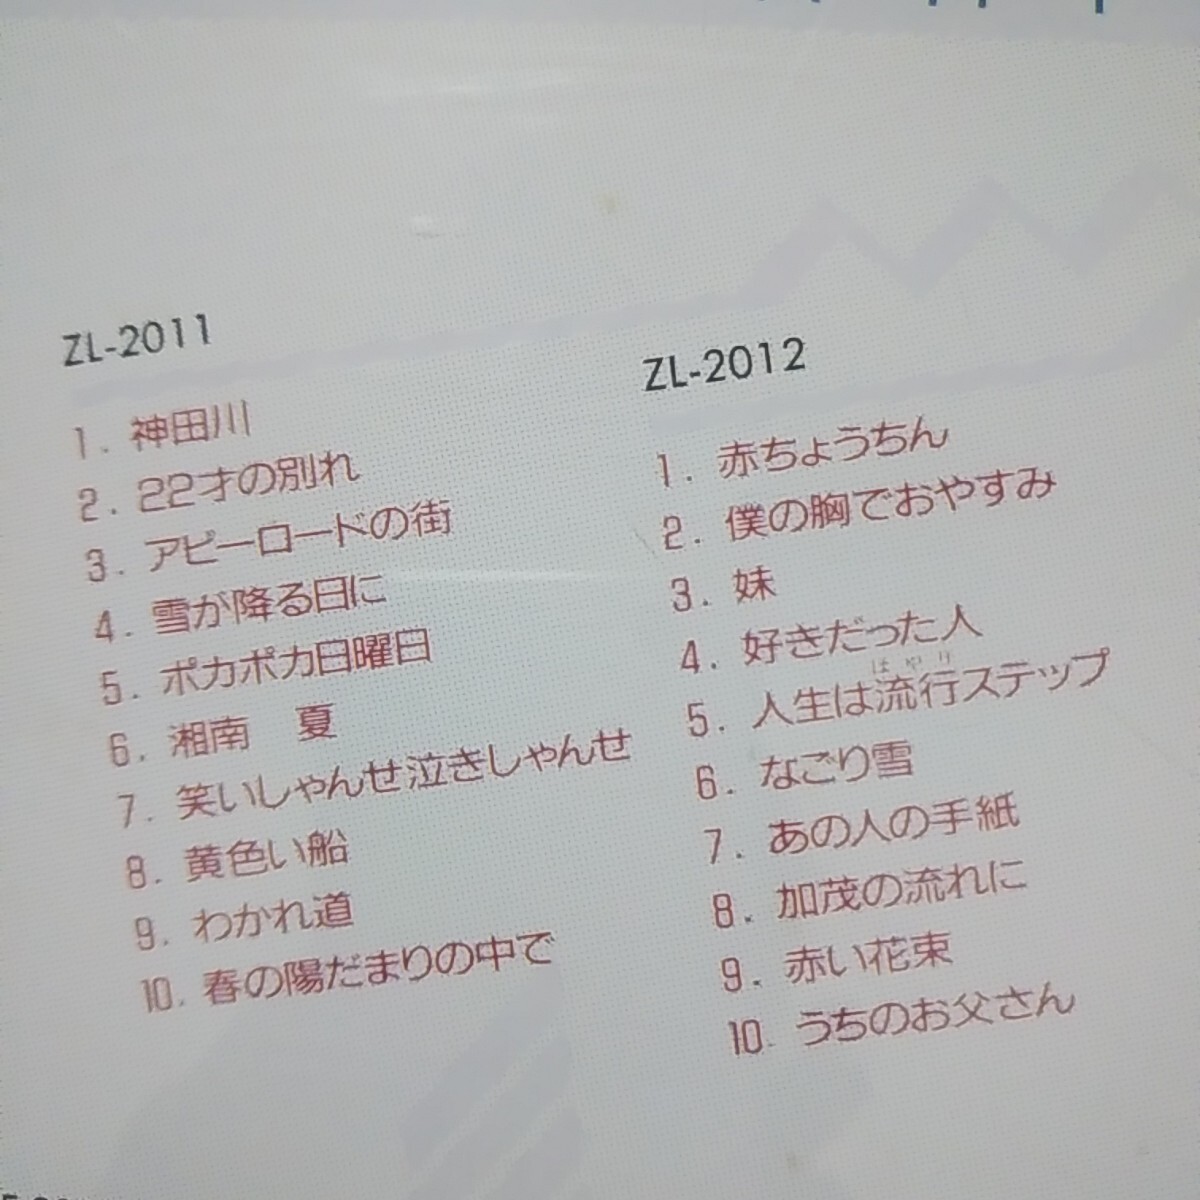 ZL-2011
1. 神田川
2. 22才の別れ
3. アビーロードの街
4. 雪が降る日に
5. ポカポカ日曜日
6. 湘南 夏
7. 笑いしゃんせ泣きしゃんせ
8. 黄色い船
9. わかれ道
10. 春の陽だまりの中で
ZL-2012
1. 赤ちょうちん
2. 僕の胸でおやすみ
3. 妹
4. 好きだった人
はやり
5. 人生は流行ステップ
6. なごり雪
7. あの人の手紙
8. 加茂の流れに
9. 赤い花束
10. うちのお父さん